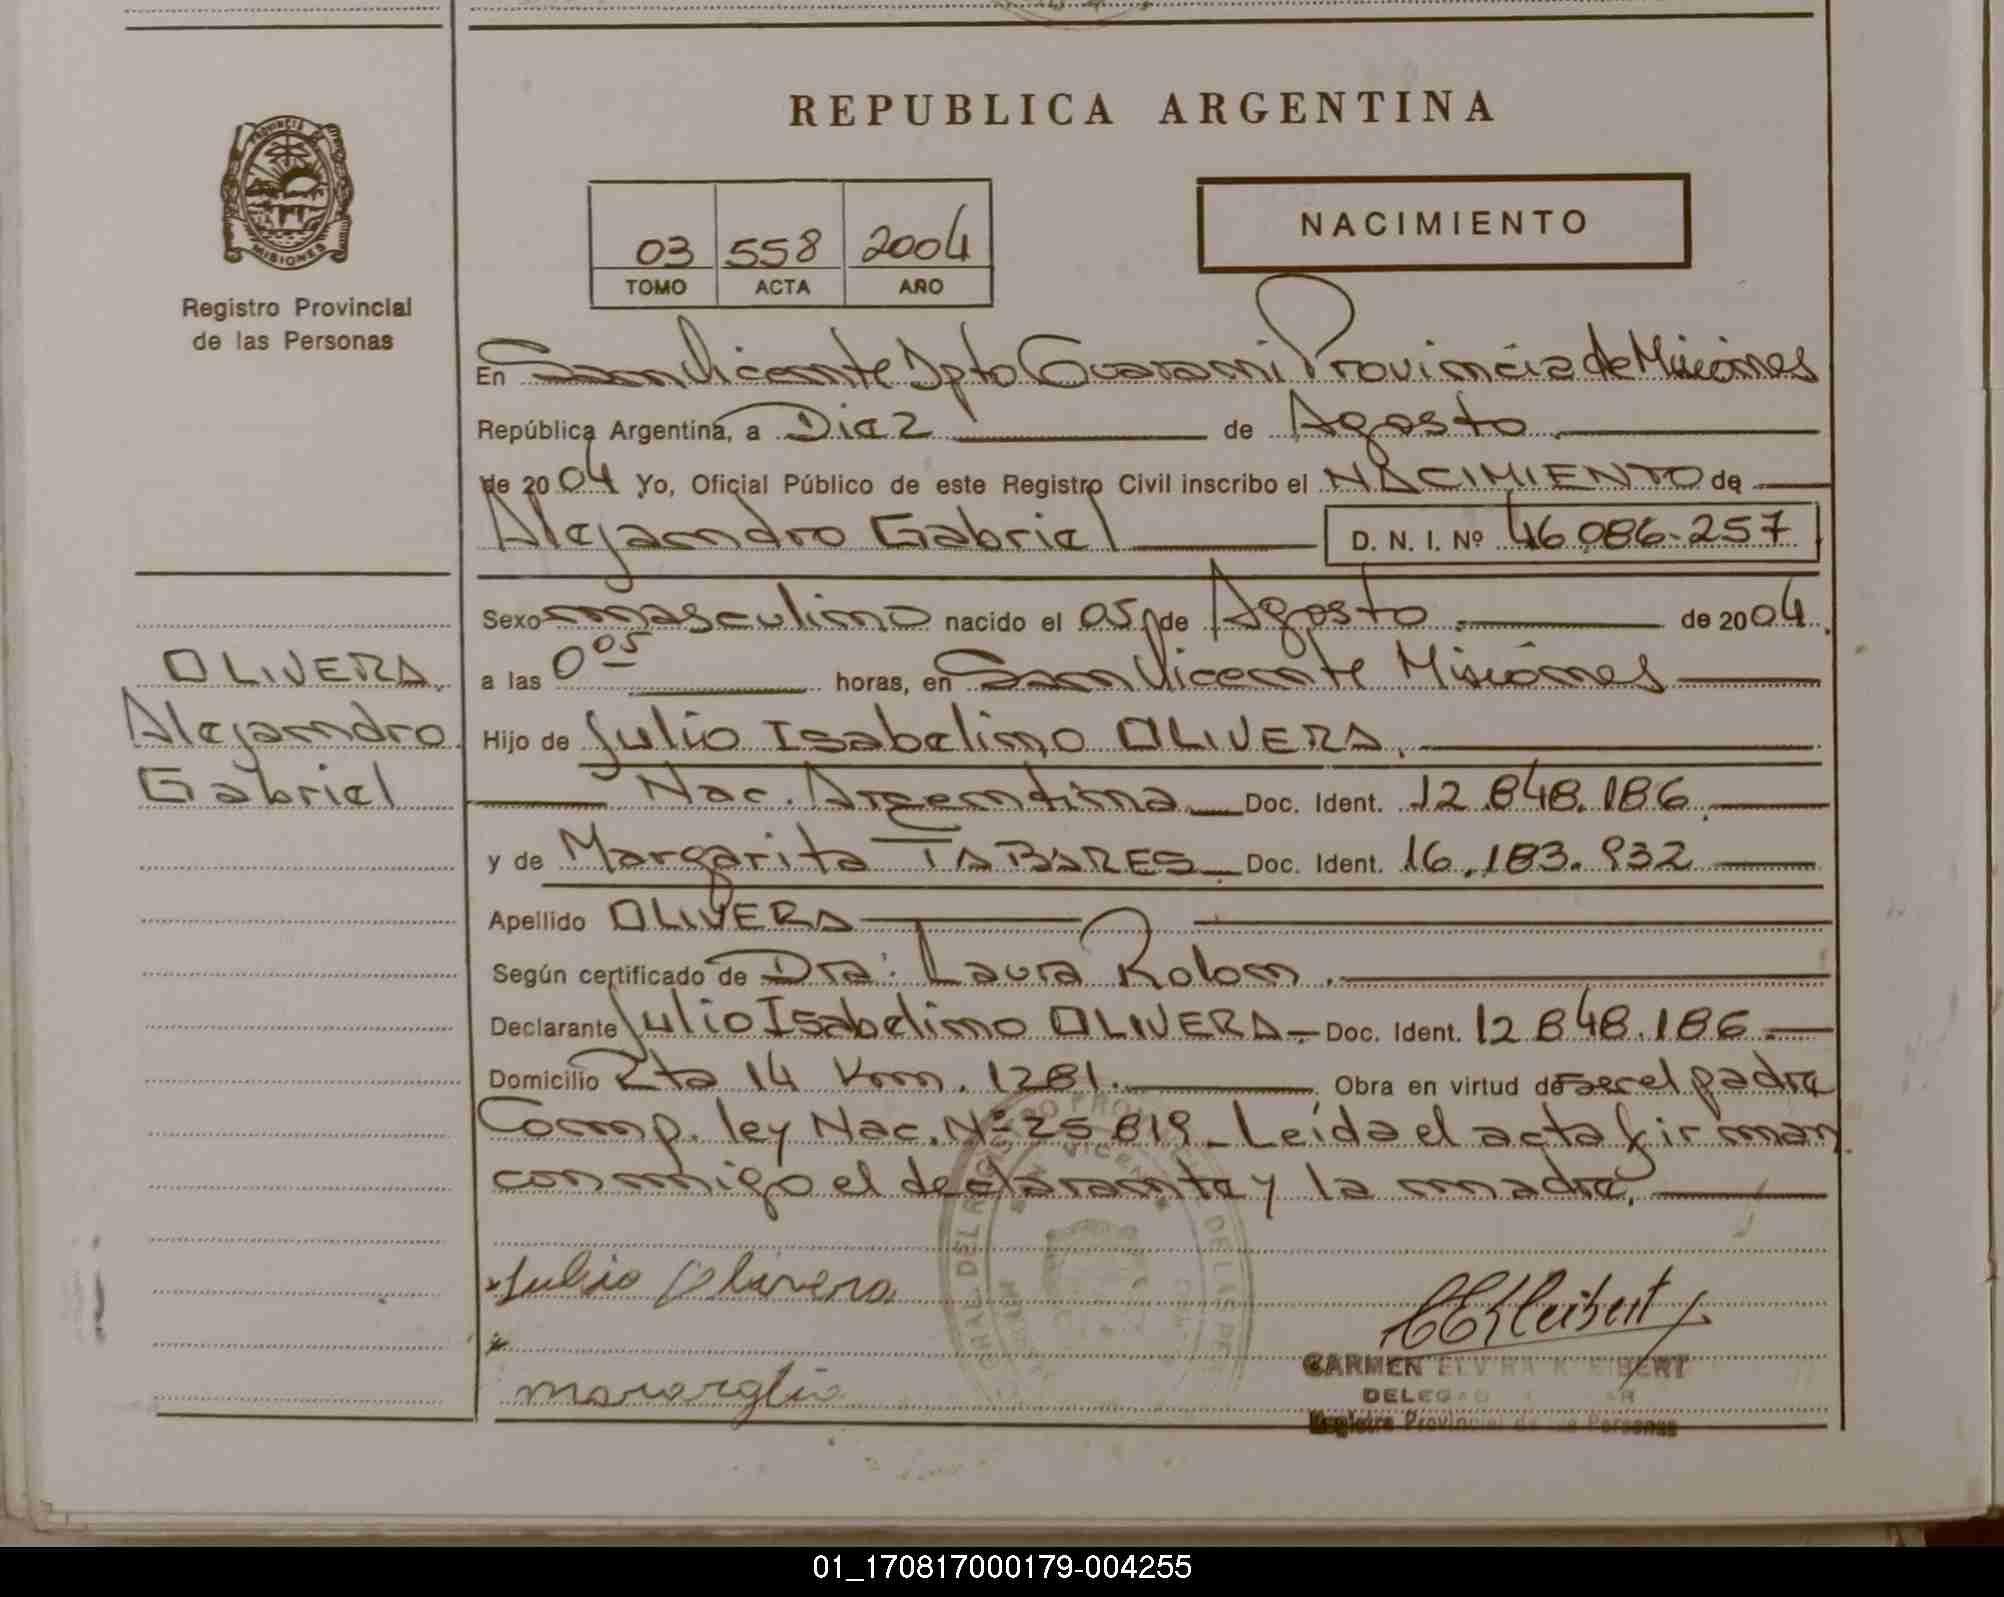 REPUBLICA ARGENTINA
PROVINCIA DE
MISIONES
Registro Provincial
de las Personas
NACIMIENTO
03 558 2004
TOMO ACTA AÑO
En San Vicente Dpto Guarani Provincia de Misiones
República Argentina, a Diez de Agosto
de 2004 Yo, Oficial Público de este Registro Civil inscribo el NACIMIENTO de
Alejandro Gabriel D. N. I. Nº 46.086.257
Sexo masculino nacido el 05 de Agosto de 2004
a las 0 05 horas, en San Vicente Misiones
OLIVERA
Alejandro
Gabriel
Hijo de Julio Isabelino OLIVERA.
Nac. Argentina Doc. Ident. 12.848.186
y de Margarita TABARES Doc. Ident. 16.183.932
Apellido OLIVERA
Según certificado de Dra: Laura Rolon.
Declarante Julio Isabelino OLIVERA Doc. Ident. 12.848.186
Domicilio Rta 14 Km. 1281. Obra en virtud de ser el padre
Comp. ley Nac. Nº 25.819_ Leída el acta firman
conmigo el declarante y la madre.
Julio Olivera
CARMEN ELVIRA KLEIBERT
Registro Provincial de las Personas
01_170817000179-004255